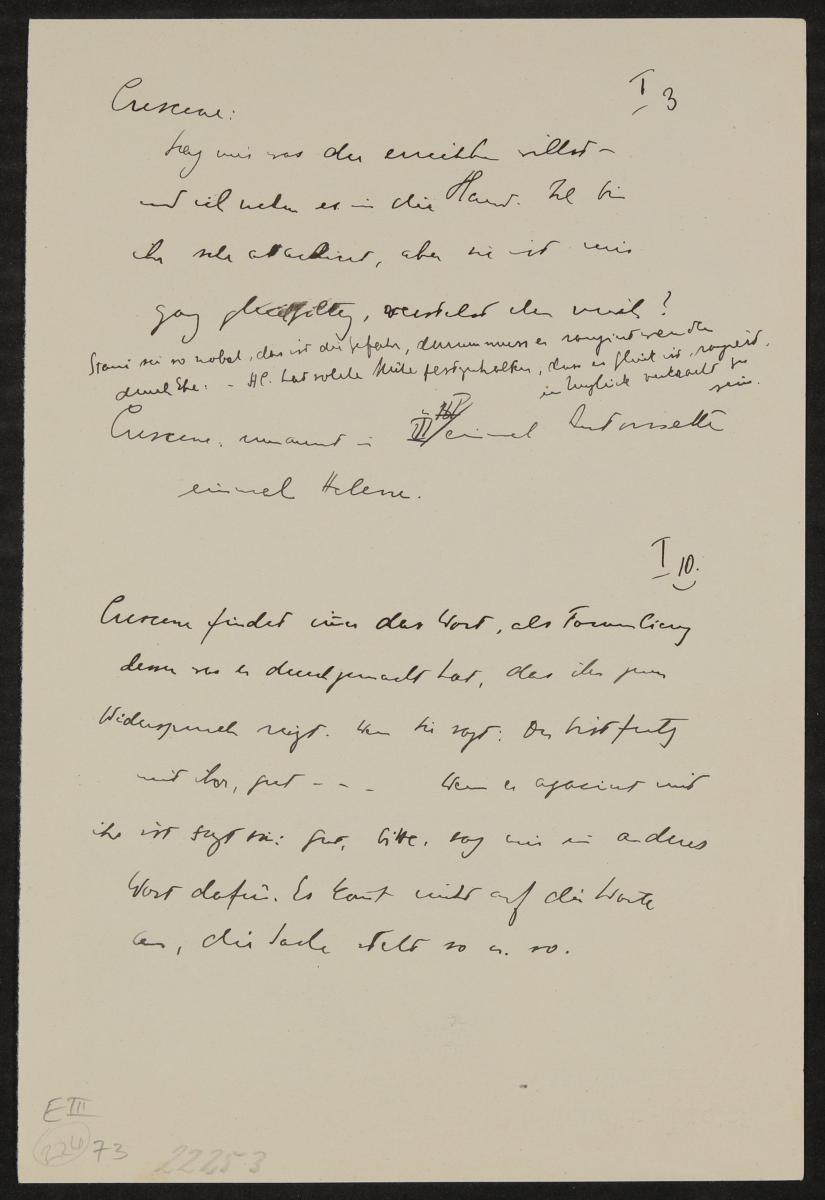 I 3
Crescence:
Sag mir was du erreichen willst –
und ich nehm es in die Hand. Ich bin
ihr sehr attachiert, aber sie ist mir
ganz gleichgiltig, verstehst du mich?
Stani sei so nobel, das ist die Gefahr, darum muss er rangiert werden
durch Ehe: – H. C. hat solche Mühe festzuhalten, dass es Glück ist, rangiert,
ein Unglück verkracht zu
sein.
Crescence: umarmt in III einmal Antoinette
einmal Helene.
I 10.
Crescence findet immer das Wort, als Formulierung
dessen was er durchgemacht hat, das ihn zum
Widerspruch reizt. Wenn sie sagt: Du bist fertig
mit ihr, gut – – – Wenn er agaciert mit
ihr ist sagt sie: gut, bitte, sag mir ein anderes
Wort dafür. Es kommt nicht auf die Worte
an, die Sache steht so u. so.
E III
224 73
22253